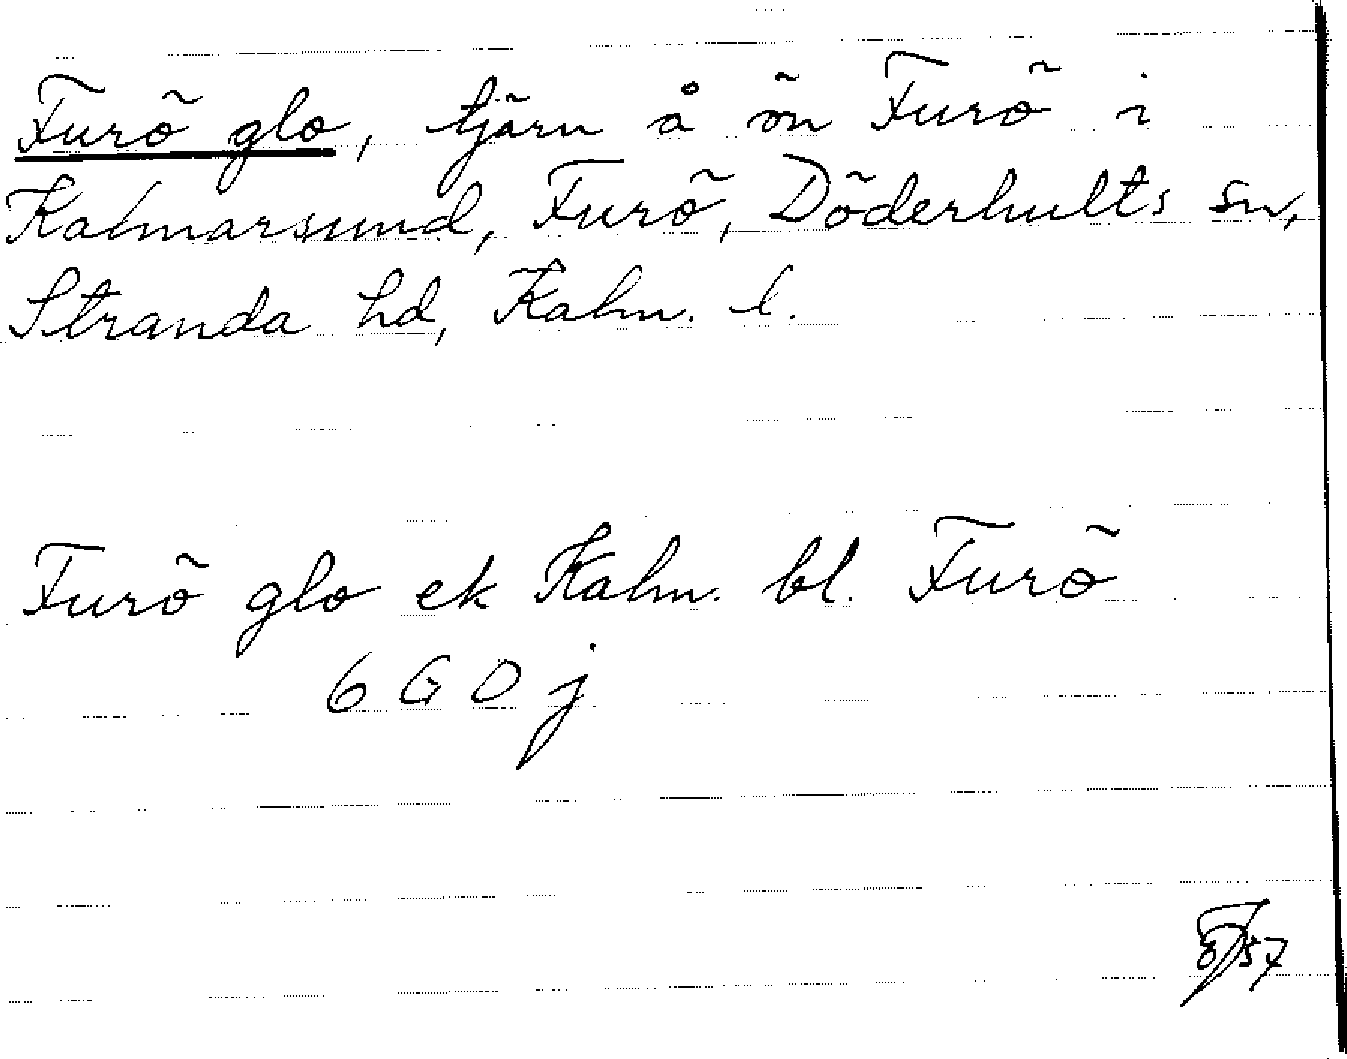 Furö glo, tjärn å ön Furö i
Kalmarsund, Furö, Döderhults sn,
Stranda hd, Kalm. l.
Furö glo ek Kalm. bl. Furö
6 G O j